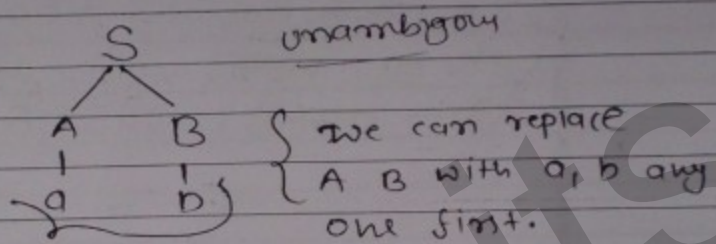 S unambigous
A B { we can replace
a b A B with a, b any
one first.